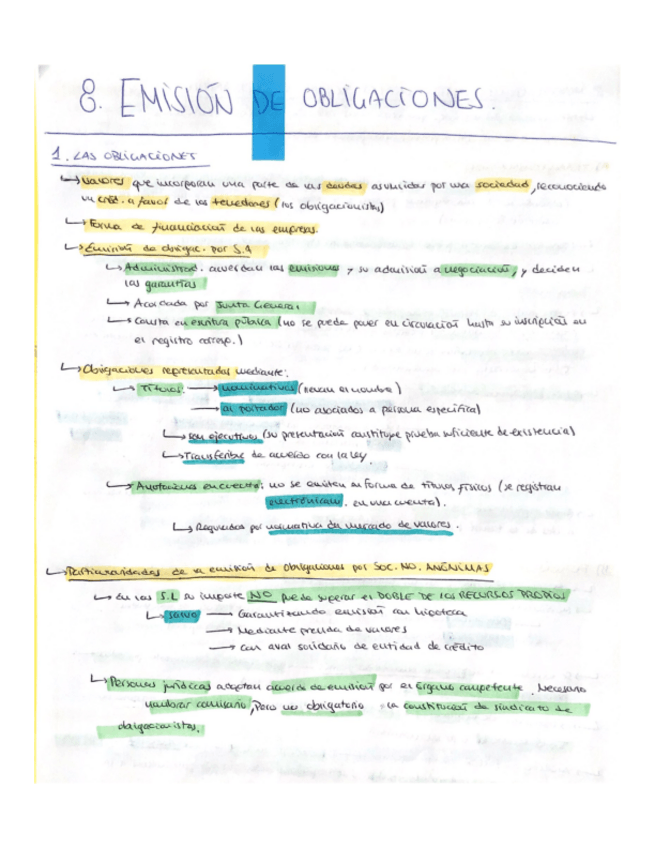 8. EMISIÓN DE OBLIGACIONES.
1. LAS OBLIGACIONES
↳ Valores que incorporan una parte de las deudas asumidas por una sociedad, reconociendo
un créd. a favor de los tenedores (los obligacionistas)
↳ Forma de financiación de las empresas.
↳ Emisión de obligac. por S.A
↳ Administrad. acuerdan las emisiones y su admisión a negociación, y deciden
las garantías
↳ Acordada por Junta General
↳ Consta en escritura pública (no se puede poner en circulación hasta su inscripción en
el registro corresp.)
↳ Obligaciones representadas mediante:
↳ Títulos: → nominativos (llevan el nombre)
→ al portador (no asociados a persona específica)
↳ son ejecutivos (su presentación constituye prueba suficiente de existencia)
↳ Transferibles de acuerdo con la ley
↳ Anotaciones en cuenta: no se emiten en forma de títulos físicos (se registran
electrónicam. en una cuenta).
↳ Regulados por normativa de mercado de valores.
↳ Particularidades de la emisión de obligaciones por SOC. NO. ANÓNIMAS
↳ En las S.L su importe NO puede superar el DOBLE DE LOS RECURSOS PROPIOS
↳ salvo — Garantizando emisión con hipoteca
→ Mediante prenda de valores
→ Con aval solidario de entidad de crédito
↳ Personas jurídicas adoptan acuerdo de emisión por el órgano competente. Necesario
nombrar comisario, pero no obligatorio la constitución de sindicato de
obligacionistas.